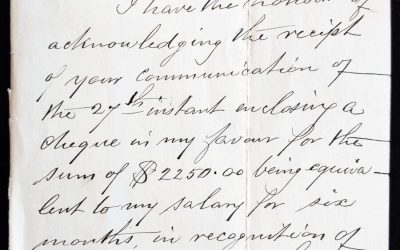 I have the honour of
acknowledging the reciept
of your communication of
the 27th instant enclosing a
cheque in my favour for the
sum of $2250.00 being equiva-
lent to my salary for six
months, in recognition of